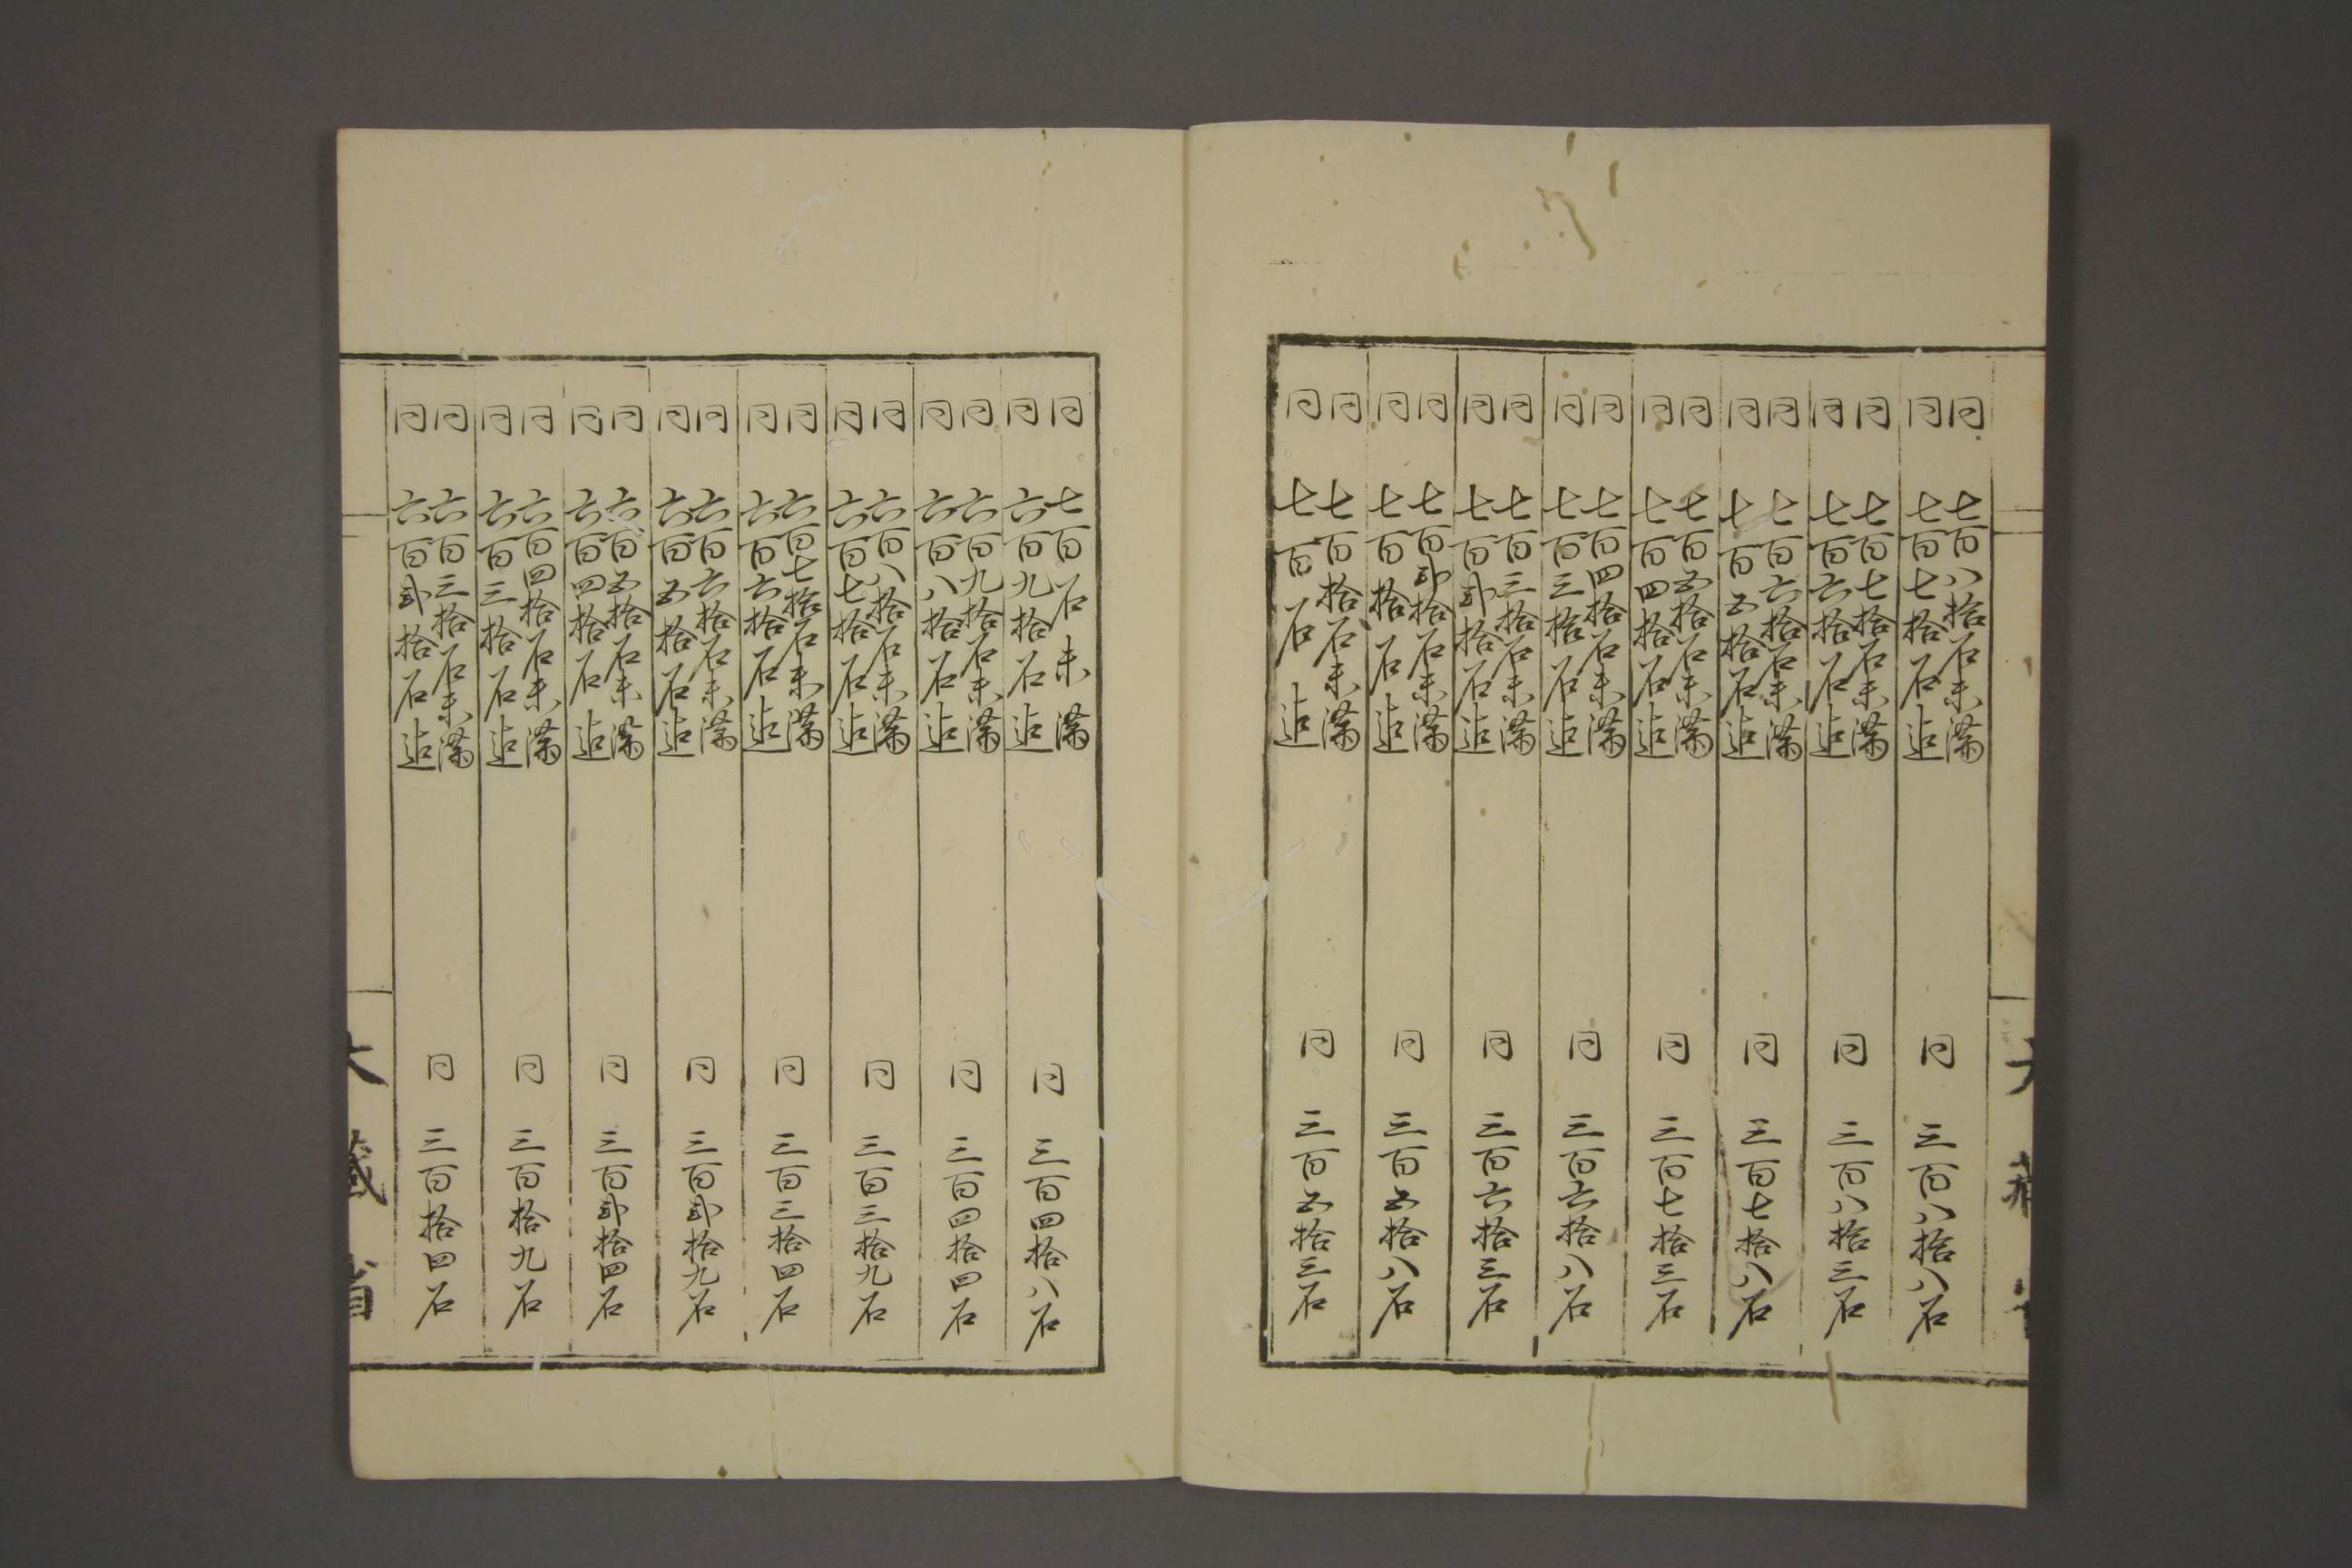 同 七百八拾石未満
同 七百七拾石迠
同 三百八拾八石
同 七百七拾石未満
同 七百六拾石迠
同 三百八拾三石
同 七百六拾石未満
同 七百五拾石迠
同 三百七拾八石
同 七百五拾石未満
同 七百四拾石迠
同 三百七拾三石
同 七百四拾石未満
同 七百三拾石迠
同 三百六拾八石
同 七百三拾石未満
同 七百弐拾石迠
同 三百六拾三石
同 七百弐拾石未満
同 七百拾石迠
同 三百五拾八石
同 七百拾石未満
同 七百石迠
同 三百五拾三石
同 七百石未満
同 六百九拾石迠
同 三百四拾八石
同 六百九拾石未満
同 六百八拾石迠
同 三百四拾四石
同 六百八拾石未満
同 六百七拾石迠
同 三百三拾九石
同 六百七拾石未満
同 六百六拾石迠
同 三百三拾四石
同 六百六拾石未満
同 六百五拾石迠
同 三百弐拾九石
同 六百五拾石未満
同 六百四拾石迠
同 三百弐拾四石
同 六百四拾石未満
同 六百三拾石迠
同 三百拾九石
同 六百三拾石未満
同 六百弐拾石迠
同 三百拾四石
大藏省